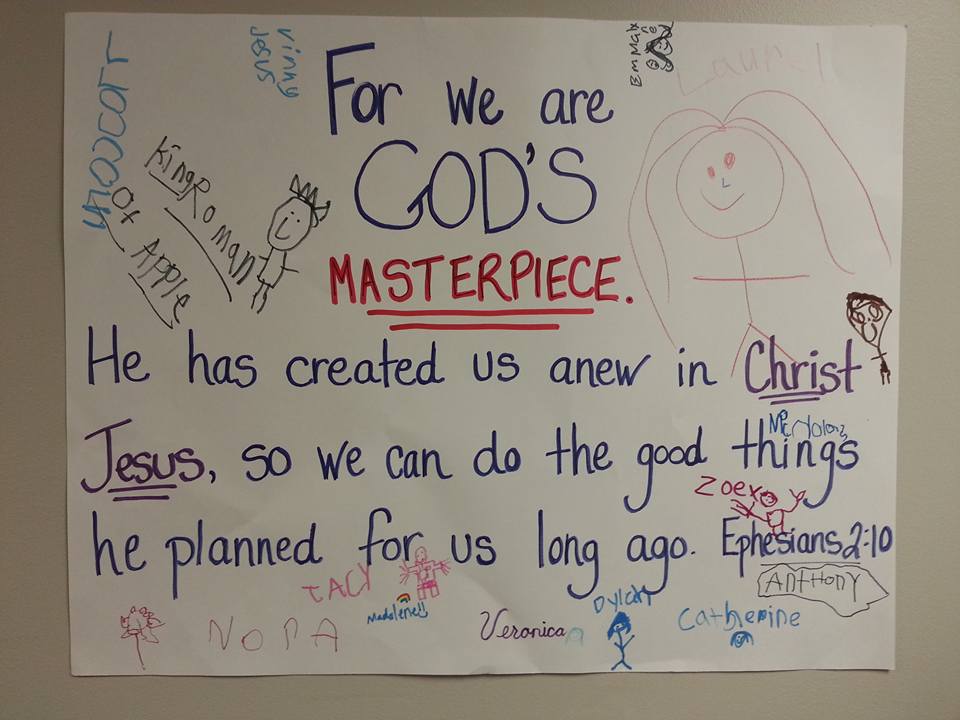 For we are
GOD'S
MASTERPIECE.
He has created us anew in Christ
Jesus, so we can do the good things
he planned for us long ago. Ephesians 2:10
Vinny
Jesus
King Roman
Of Apple
Emma
Zoey
Anthony
TACY
Madelene
NORA
Veronica
Dylan
Catherine